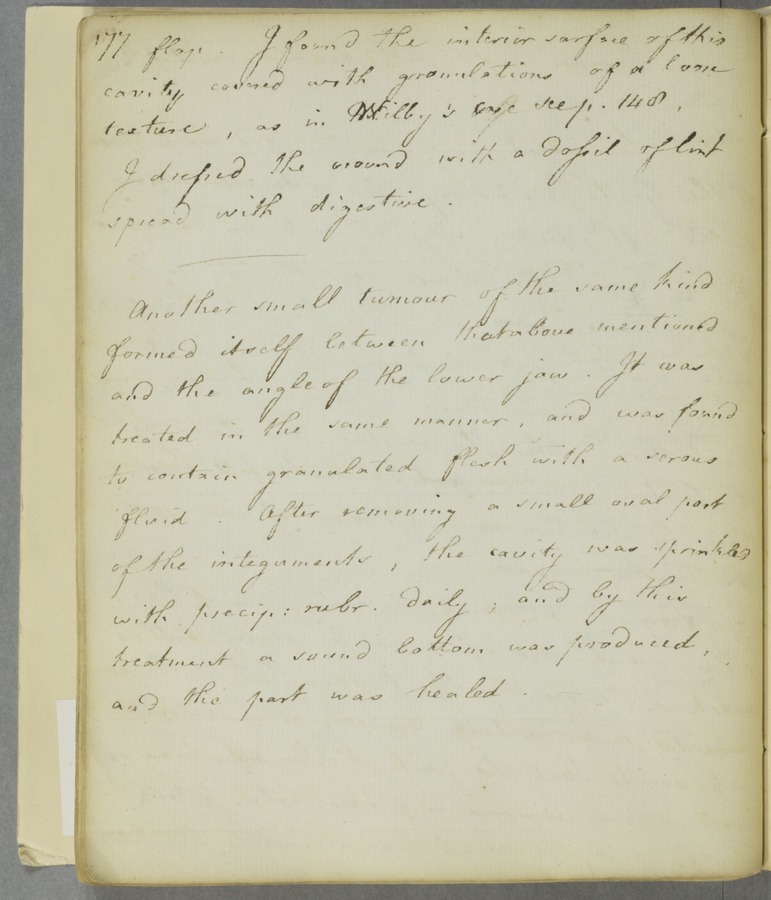 177 flap. I found the interior surface of this
cavity covered with granulations of a loose
texture, as in Wilby's case see p. 148.
I dressed the wound with a dossil of lint
spread with digestive.
Another small tumour of the same kind
formed itself between that above mention'd
and the angle of the lower jaw. It was
treated in the same manner, and was found
to contain granulated flesh with a serous
fluid. After removing a small oval part
of the integuments, the cavity was sprinkled
with precip: rubr. daily; and by this
treatment a sound bottom was produced,
and the part was healed.